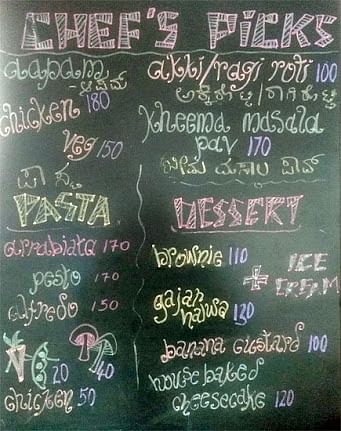 CHEF'S PICKS
aapam
ಆಪಮ್
chicken 180
veg 150
akki/ragi roti 100
ಅಕ್ಕಿ ರೊಟ್ಟಿ/ರಾಗಿ ರೊಟ್ಟಿ
kheema masala
pav 170
ಖೀಮ ಮಸಾಲ ಪಾವ್
ಪಾಸ್ತ
PASTA
arrabiata 170
pesto 170
alfredo 150
20
40
chicken 50
DESSERT
brownie 110
+ ICE
CREAM
gajar
halwa 130
banana custard 100
house baked
cheesecake 120